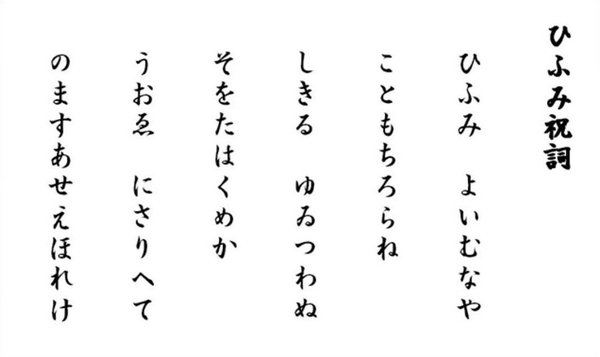 ひふみ祝詞
ひふみ　よいむなや
こともちろらね
しきる　ゆゐつわぬ
そをたはくめか
うおゑ　にさりへて
のますあせえほれけ